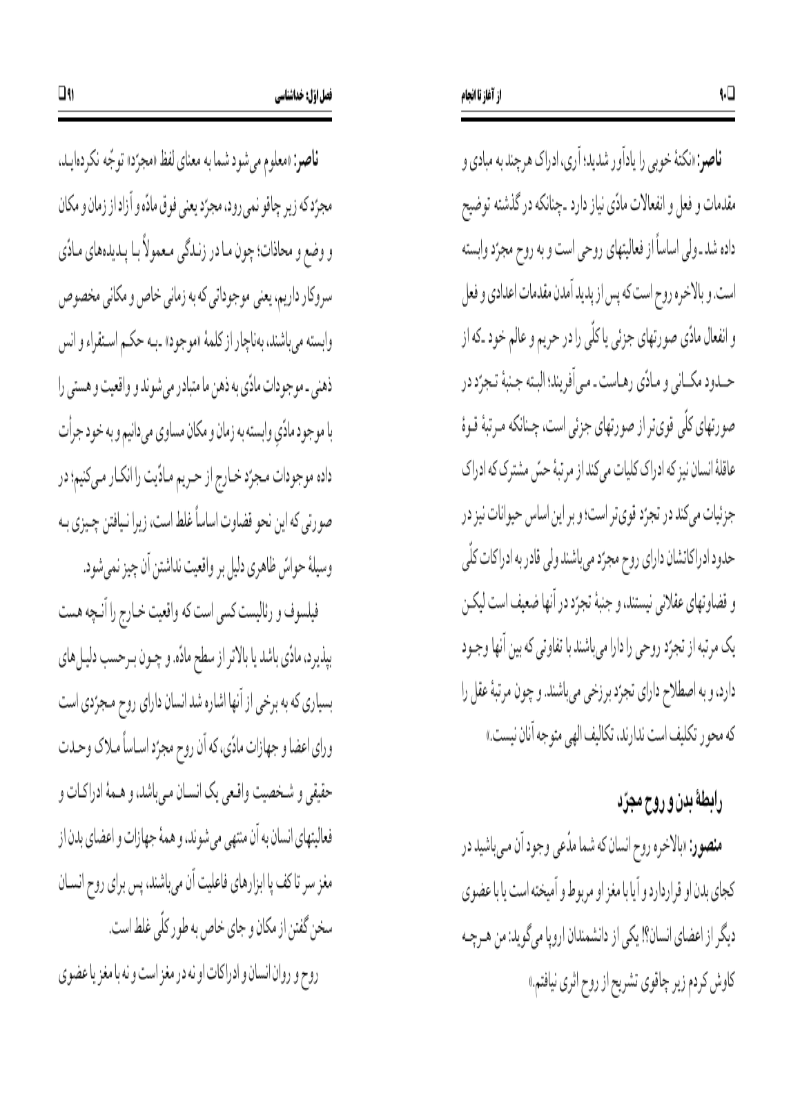 ❑ ۹۰ از آغاز تا انجام
ناصر: «نکتهٔ خوبی را یادآور شدید؛ آری، ادراک هرچند به مبادی و
مقدمات و فعل و انفعالات مادّی نیاز دارد ـ چنانکه در گذشته توضیح
داده شد ـ ولی اساساً از فعالیتهای روحی است و به روح مجرّد وابسته
است. و بالاخره روح است که پس از پدید آمدن مقدمات اعدادی و فعل
و انفعال مادّی صورتهای جزئی یا کلّی را در حریم و عالم خود ـ که از
حدود مکانی و مادّی رهاست ـ می‌آفریند؛ البته جنبهٔ تجرّد در
صورتهای کلّی قوی‌تر از صورتهای جزئی است، چنانکه مرتبهٔ قوهٔ
عاقلهٔ انسان نیز که ادراک کلیات می‌کند از مرتبهٔ حسّ مشترک که ادراک
جزئیات می‌کند در تجرّد قوی‌تر است؛ و بر این اساس حیوانات نیز در
حدود ادراکاتشان دارای روح مجرّد می‌باشند ولی قادر به ادراکات کلّی
و قضاوتهای عقلانی نیستند، و جنبهٔ تجرّد در آنها ضعیف است لیکن
یک مرتبه از تجرّد روحی را دارا می‌باشند با تفاوتی که بین آنها وجود
دارد، و به اصطلاح دارای تجرّد برزخی می‌باشند. و چون مرتبهٔ عقل را
که محور تکلیف است ندارند، تکالیف الهی متوجه آنان نیست.»
رابطهٔ بدن و روح مجرّد
منصور: «بالاخره روح انسان که شما مدّعی وجود آن می‌باشید در
کجای بدن او قرار دارد و آیا با مغز او مربوط و آمیخته است یا با عضوی
دیگر از اعضای انسان؟! یکی از دانشمندان اروپا می‌گوید: من هرچه
کاوش کردم زیر چاقوی تشریح از روح اثری نیافتم.»
فصل اوّل: خداشناسی ۹۱ ❑
ناصر: «معلوم می‌شود شما به معنای لفظ «مجرّد» توجّه نکرده‌اید،
مجرّد که زیر چاقو نمی‌رود، مجرّد یعنی فوق مادّه و آزاد از زمان و مکان
و وضع و محاذات؛ چون ما در زندگی معمولاً با پدیده‌های مادّی
سروکار داریم، یعنی موجوداتی که به زمانی خاص و مکانی مخصوص
وابسته می‌باشند، به‌ناچار از کلمهٔ «موجود» ـ به حکم استقراء و انس
ذهنی ـ موجودات مادّی به ذهن ما متبادر می‌شوند و واقعیت و هستی را
با موجود مادّیِ وابسته به زمان و مکان مساوی می‌دانیم و به خود جرأت
داده موجودات مجرّد خارج از حریم مادّیت را انکار می‌کنیم؛ در
صورتی که این نحو قضاوت اساساً غلط است، زیرا نیافتن چیزی به
وسیلهٔ حواسّ ظاهری دلیل بر واقعیت نداشتن آن چیز نمی‌شود.
فیلسوف و رئالیست کسی است که واقعیت خارج را آنچه هست
بپذیرد، مادّی باشد یا بالاتر از سطح مادّه. و چون برحسب دلیل‌های
بسیاری که به برخی از آنها اشاره شد انسان دارای روح مجرّدی است
ورای اعضا و جهازات مادّی، که آن روح مجرّد اساساً ملاک وحدت
حقیقی و شخصیت واقعی یک انسان می‌باشد، و همهٔ ادراکات و
فعالیتهای انسان به آن منتهی می‌شوند، و همهٔ جهازات و اعضای بدن از
مغز سر تا کف پا ابزارهای فاعلیت آن می‌باشند، پس برای روح انسان
سخن گفتن از مکان و جای خاص به طور کلّی غلط است.
روح و روان انسان و ادراکات او نه در مغز است و نه با مغز یا عضوی